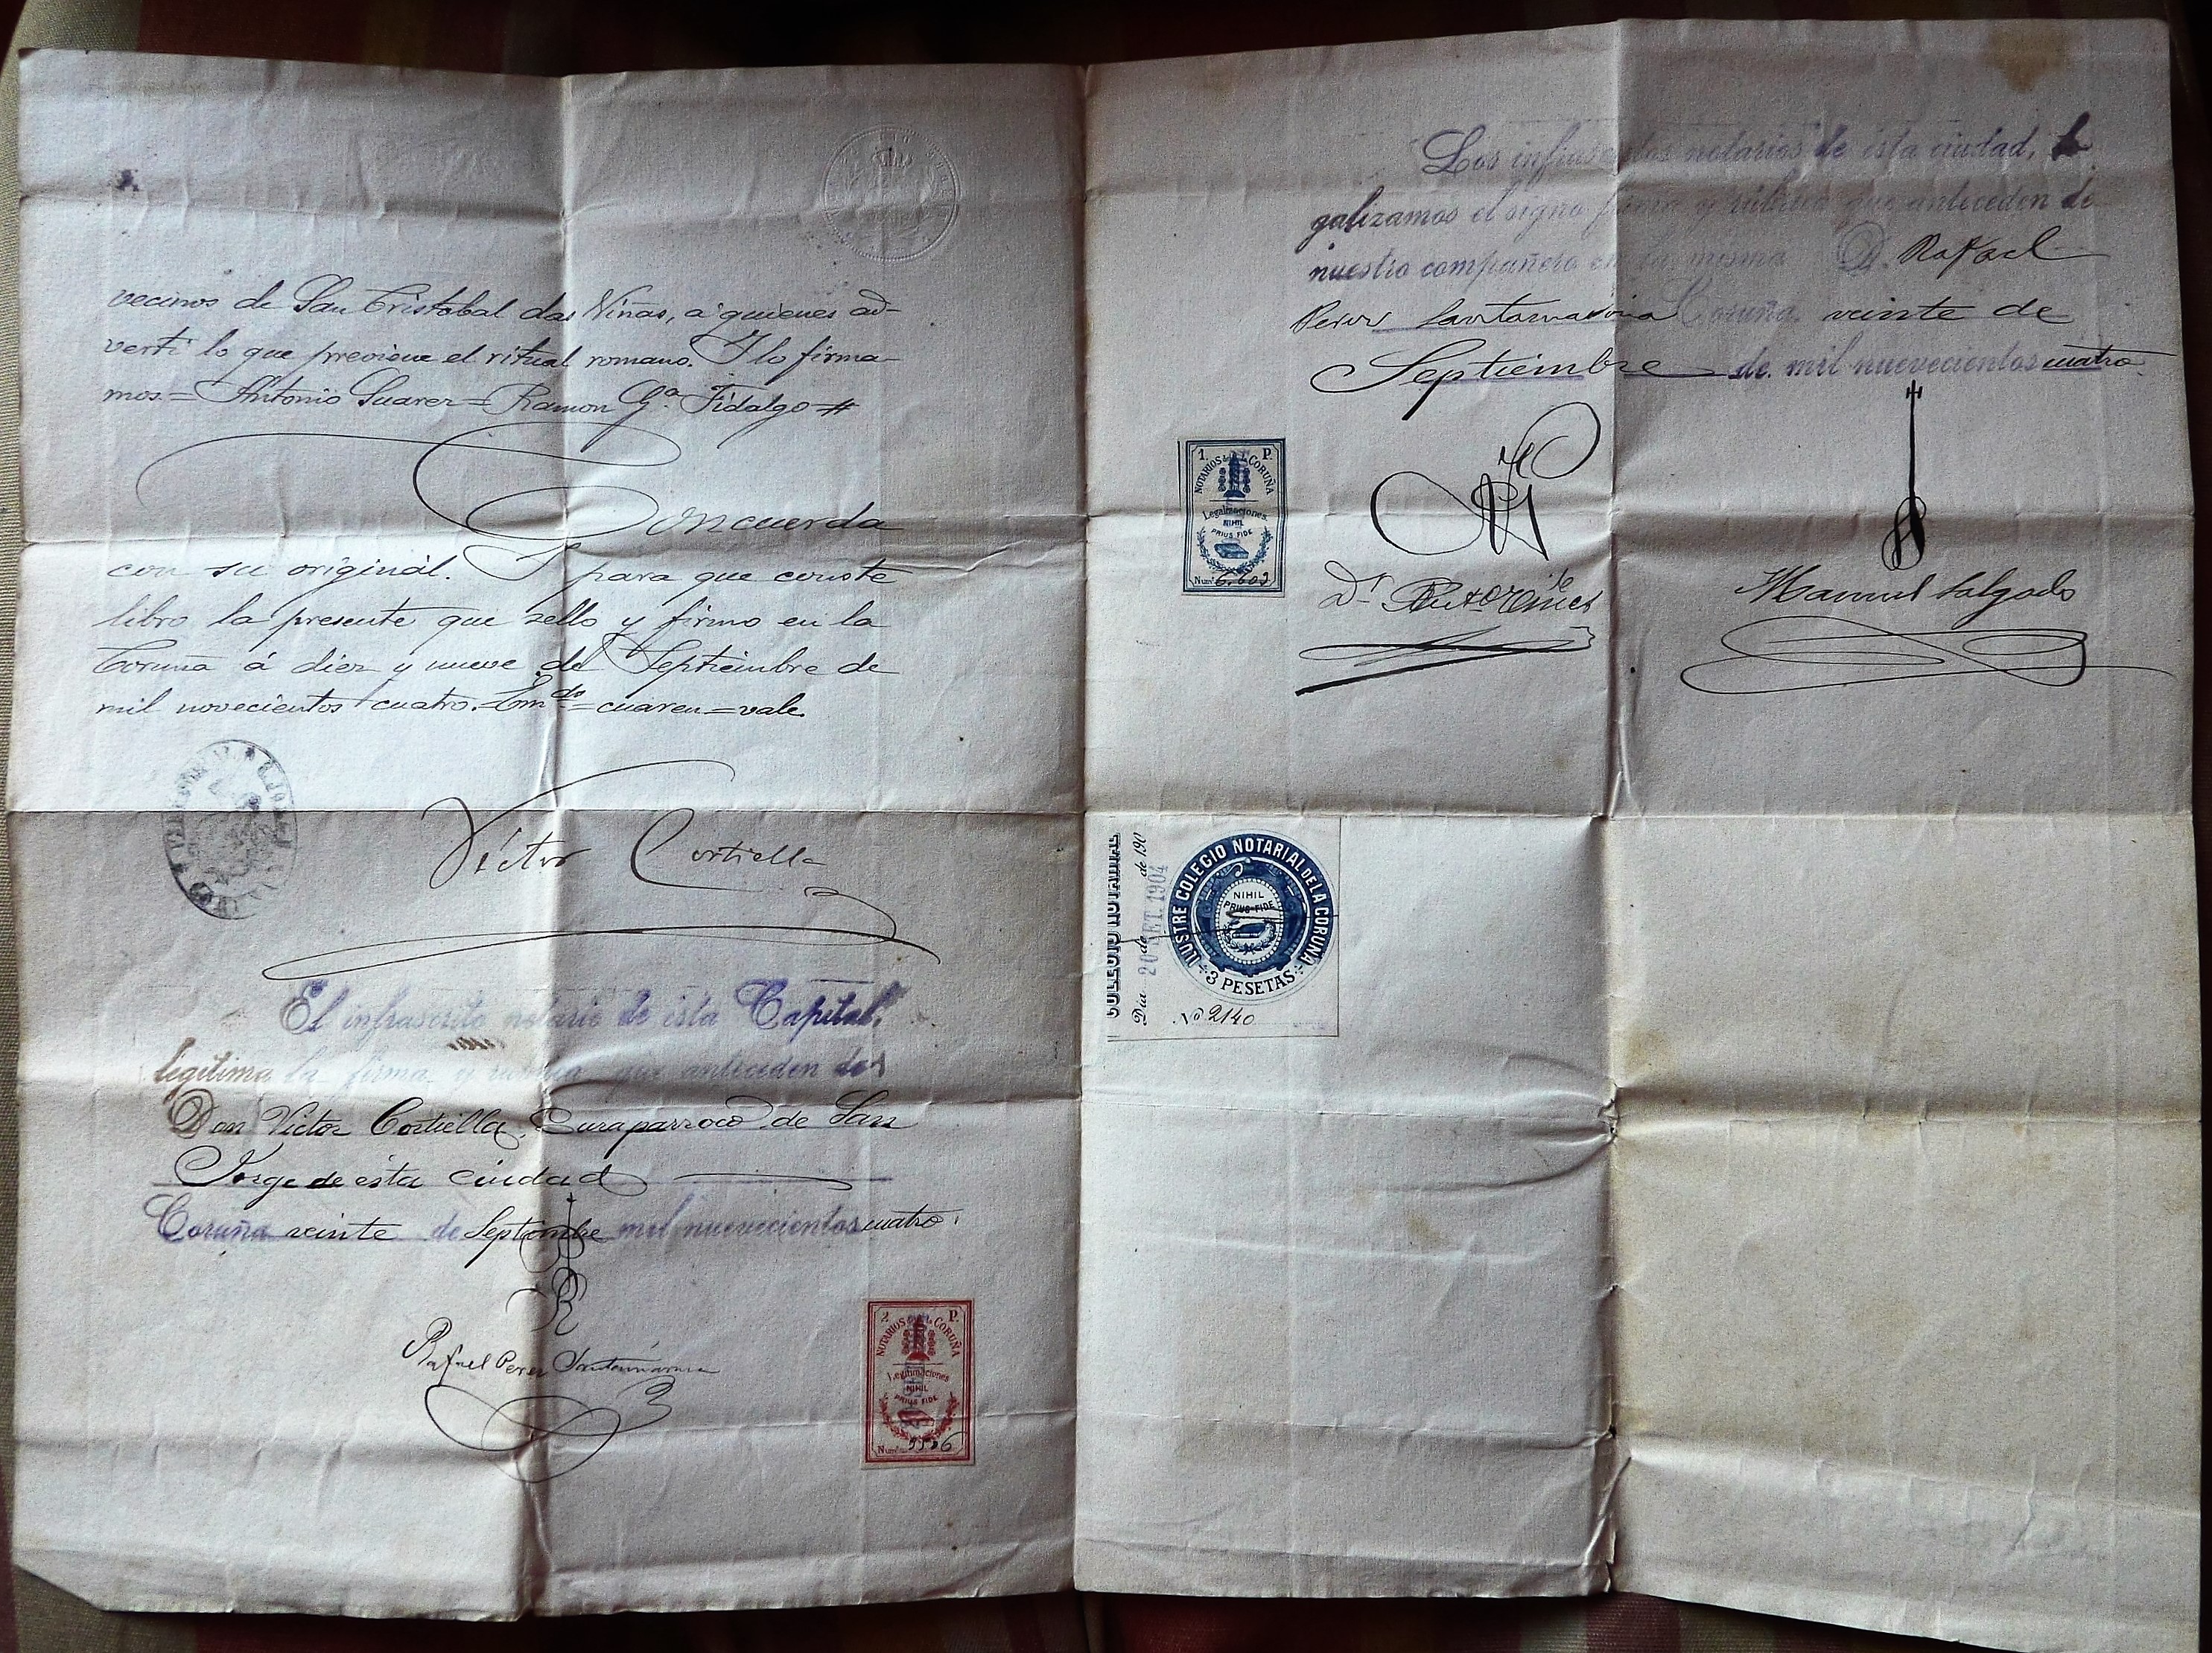 vecinos de San Cristobal das Viñas, a quienes ad-
vertí lo que previene el ritual romano. Y lo firma-
mos.= Antonio Suarez= Ramon Gª Fidalgo #
Concuerda
con su original. Y para que conste
libro la presente que sello y firmo en la
Coruña á diez y nueve de Septiembre de
mil novecientos cuatro. Emdo= cuaren=vale
Víctor Cortiella
El infrascrito notario de esta Capital,
legitima la firma y rubrica que anteceden de
Don Victor Cortiella, Cura parroco de San
Jorge de esta ciudad
Coruña veinte de Septiembre mil nuevecientos cuatro.
Rafael Perez Santamarina
2. P.
NOTARIOS DE LA CORUÑA
Legitimaciones
NIHIL
PRIUS FIDE
Los infrascritos notarios de esta ciudad, le
galizamos el signo firma y rubrica que anteceden de
nuestro compañero en la misma D. Rafael
Perez Santamarina Coruña veinte de
Septiembre de mil nuevecientos cuatro.
1. P.
NOTARIOS DE LA CORUÑA
Legalizaciones.
NIHIL
PRIUS FIDE
Numº 6.603
Manuel Salgado
COLEGIO NOTARIAL
Día de de 190
20 SET. 1904
ILUSTRE COLEGIO NOTARIAL DE LA CORUÑA
NIHIL
PRIUS FIDE
3 PESETAS
Nº 2140